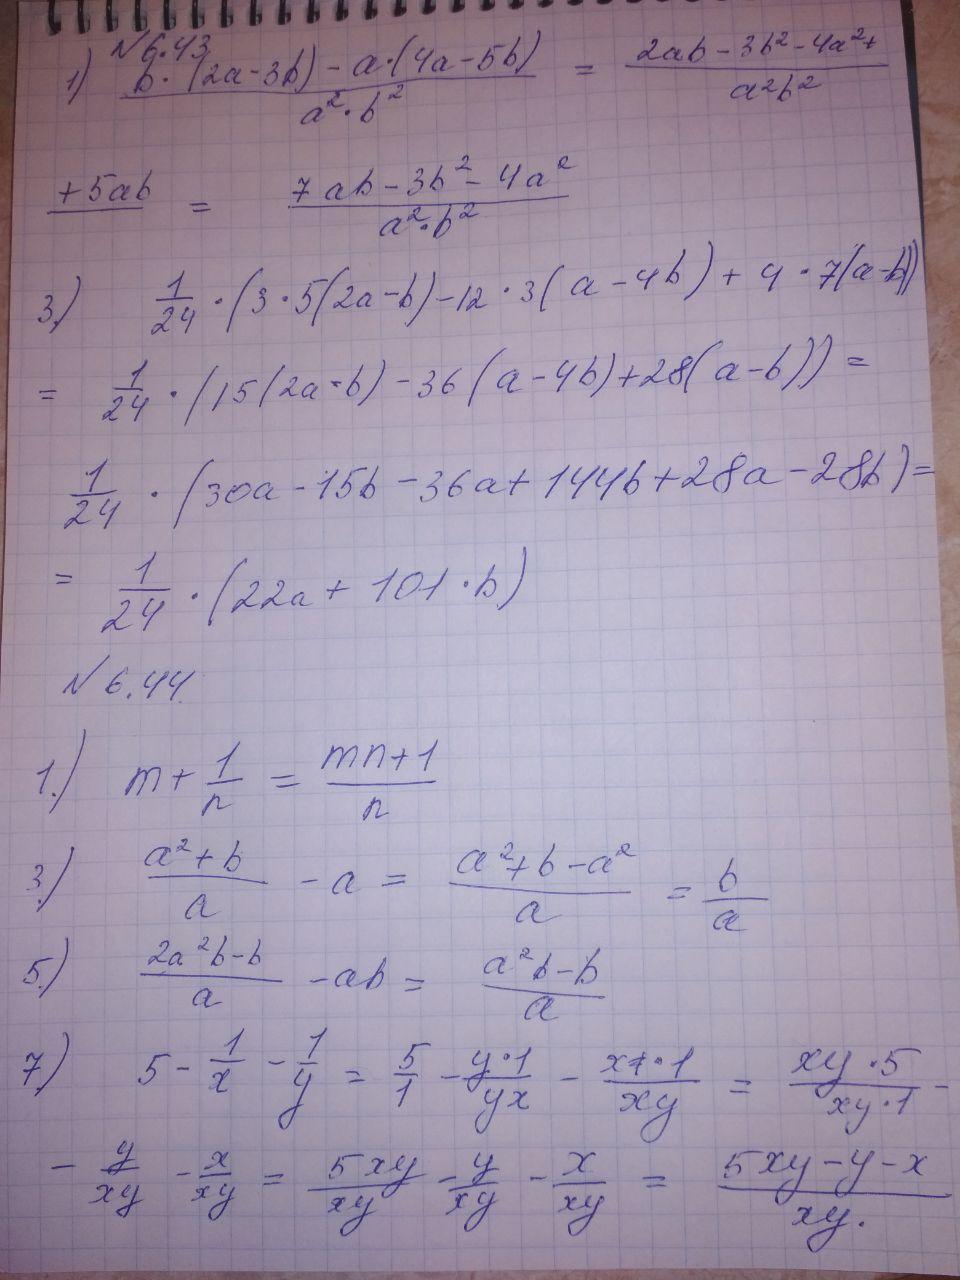 № 6.43
1) (b · (2a-3b) - a·(4a-5b))/(a²·b²) = (2ab - 3b² - 4a² +)/(a²b²)
+5ab = (7ab - 3b² - 4a²)/(a²·b²)
3.) 1/24 · (3·5(2a-b) - 12·3(a-4b) + 4·7(a-b))
= 1/24 · (15(2a-b) - 36(a-4b) + 28(a-b)) =
1/24 · (30a - 15b - 36a + 144b + 28a - 28b) =
= 1/24 · (22a + 101·b)
№ 6.44.
1.) m + 1/n = (mn+1)/n
3.) (a²+b)/a - a = (a²+b-a²)/a = b/a
5.) (2a²b-b)/a - ab = (a²b-b)/a
7.) 5 - 1/x - 1/y = 5/1 - (y·1)/(yx) - (x·1)/(xy) = (xy·5)/(xy·1) -
- y/xy - x/xy = 5xy/xy - y/xy - x/xy = (5xy-y-x)/xy.